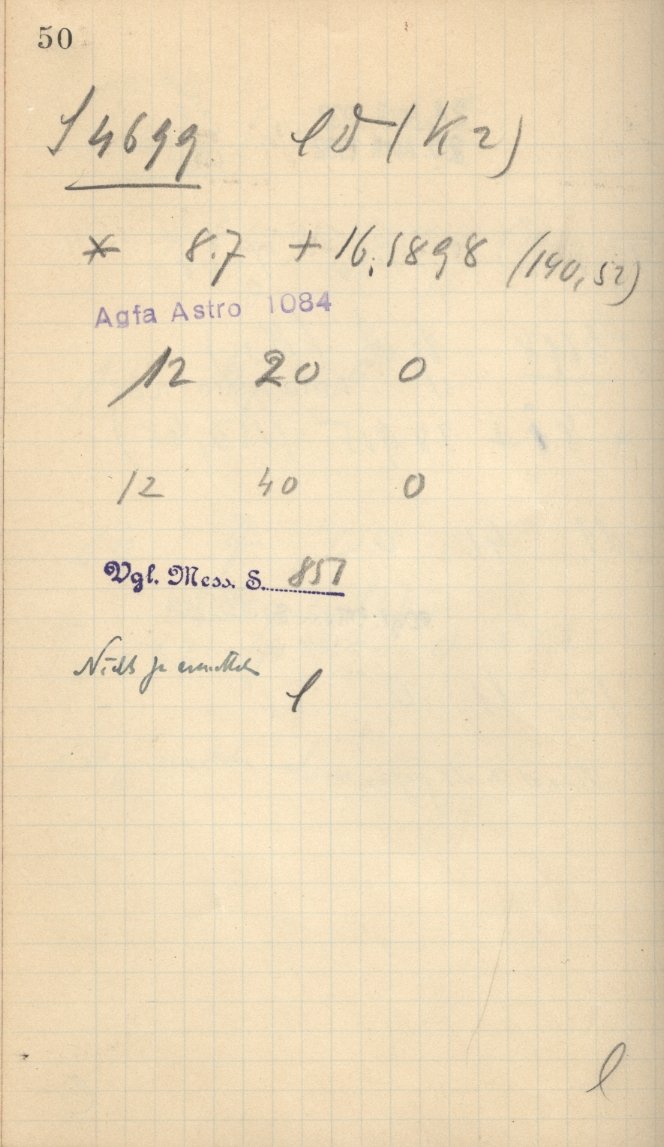 50
S 4699 (K2)
* 8.7 + 16,1898 (140,52)
Agfa Astro 1084
12 20 0
12 40 0
Vgl. Mess. S. 857
Nicht zu ermitteln
l
l